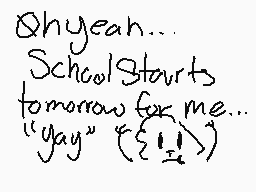 Oh yeah...
School Starts
tomorrow for me...
"yay"